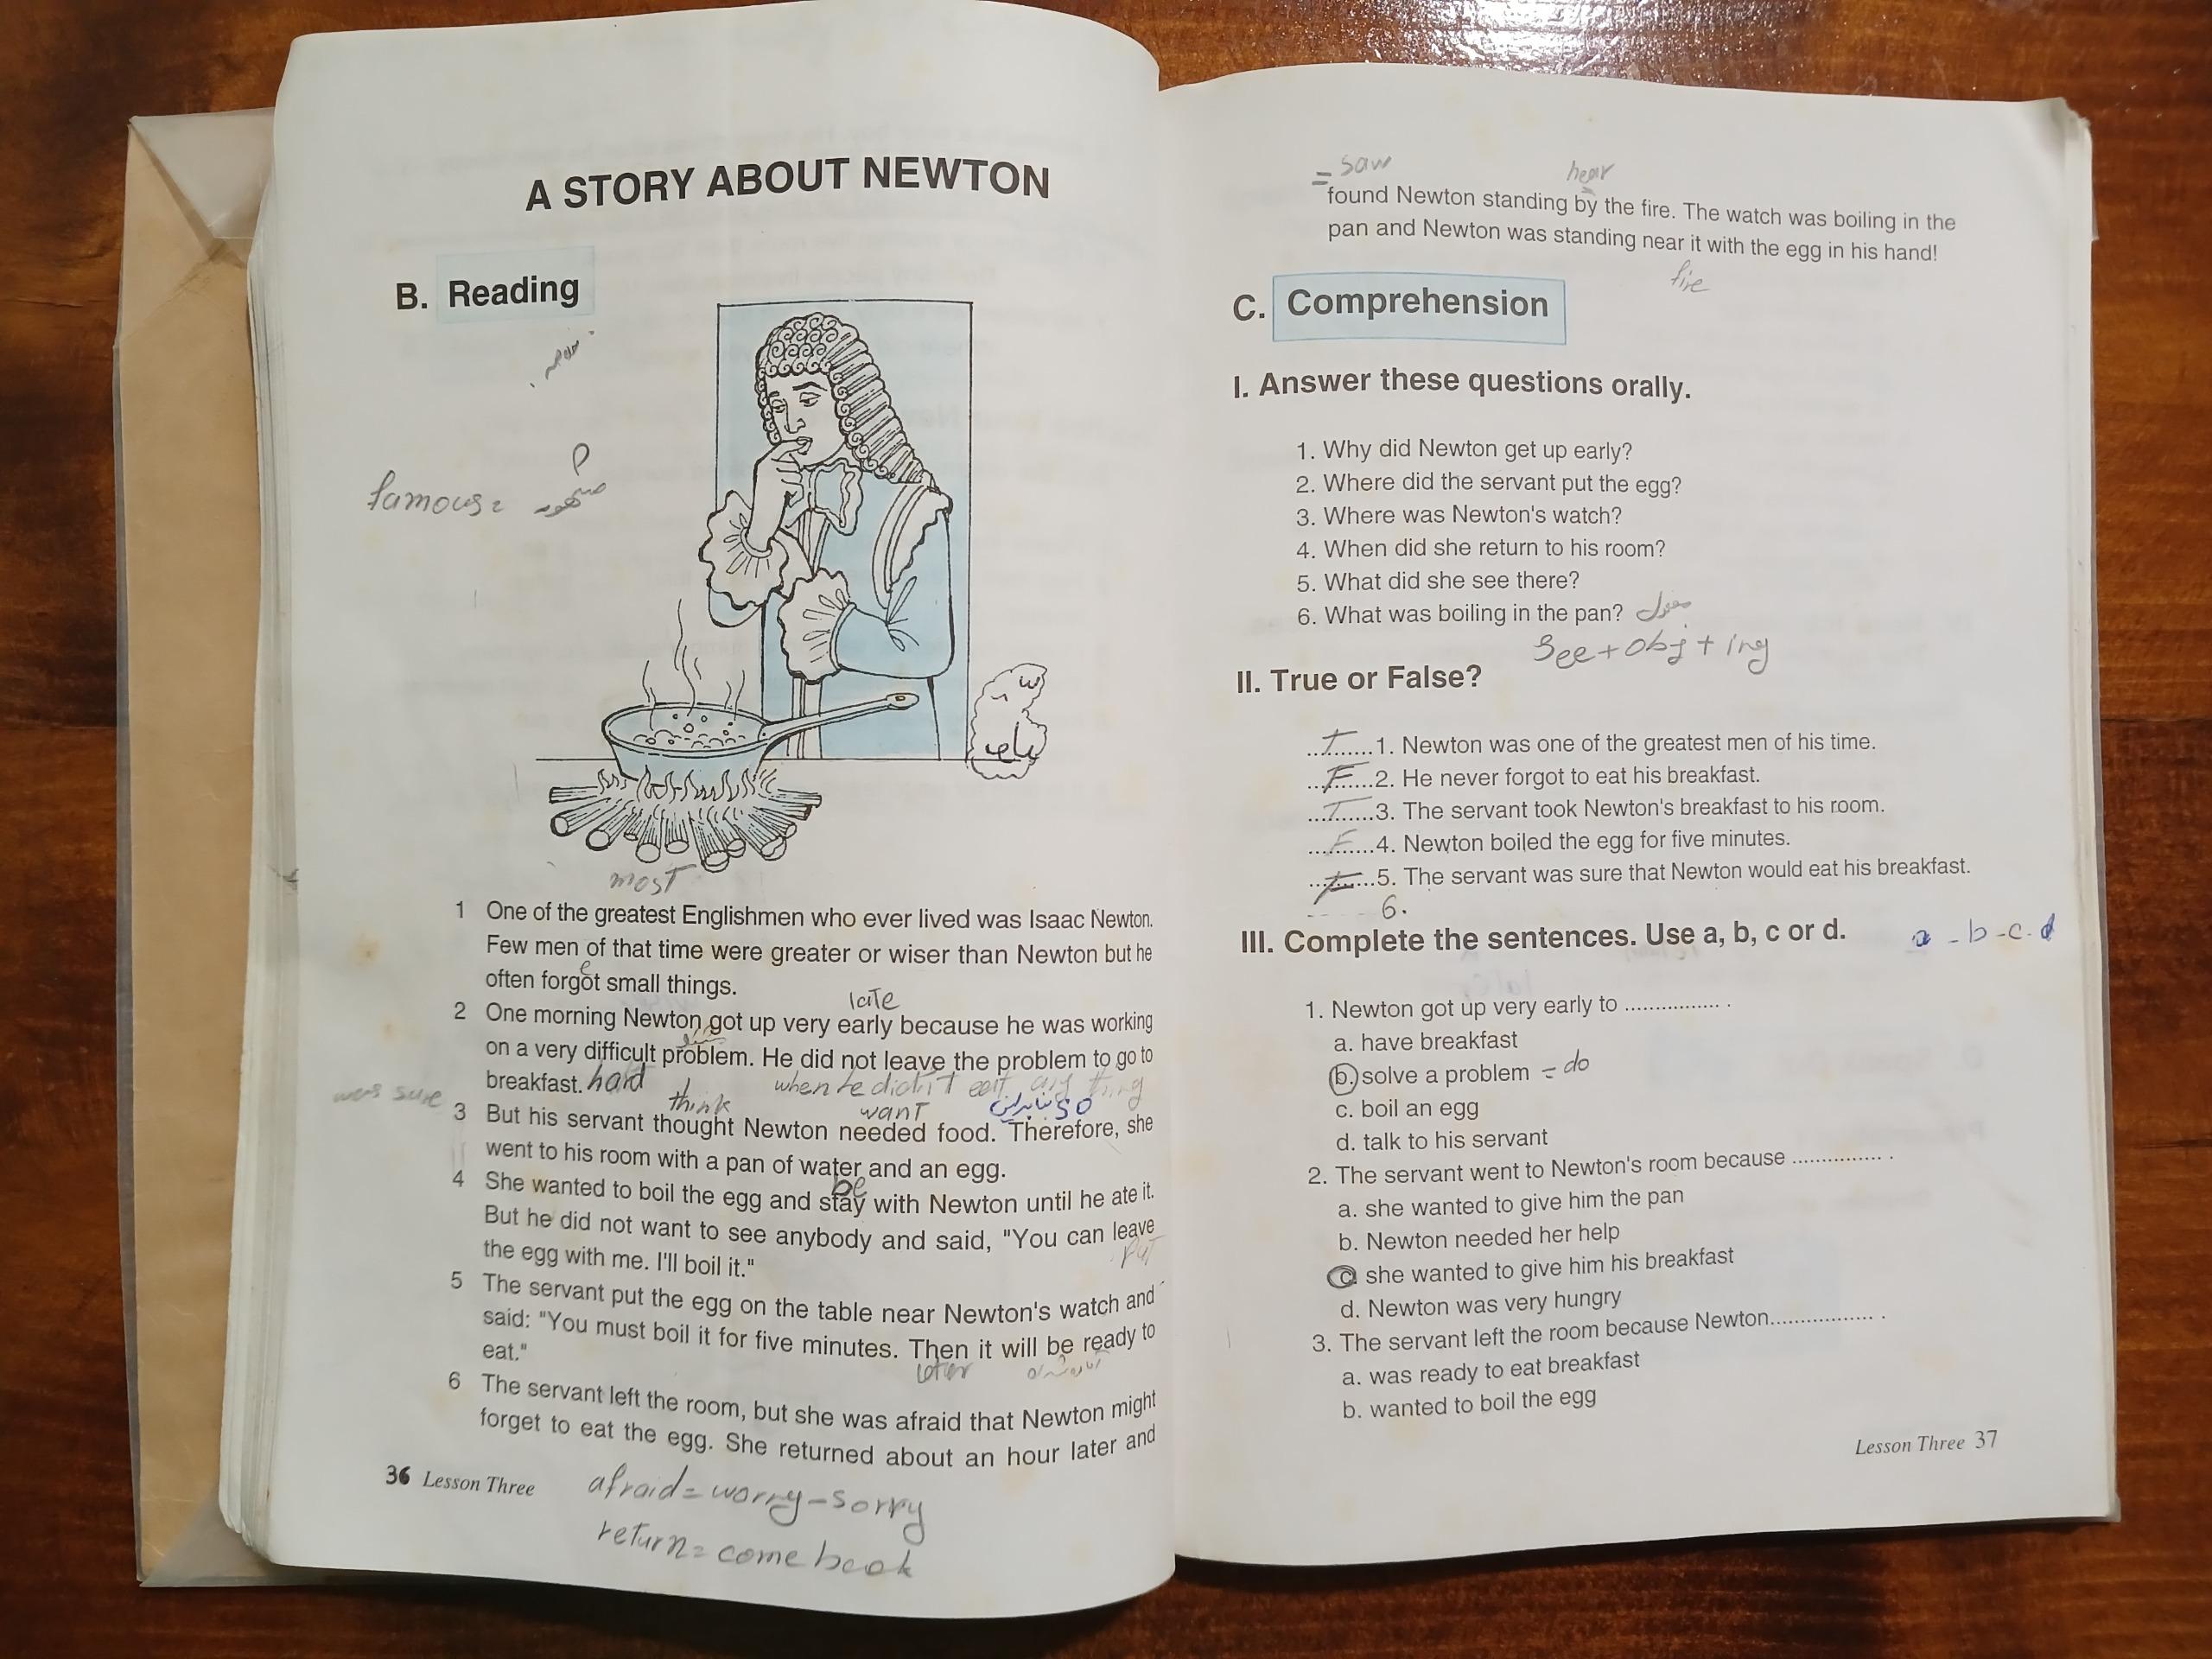 A STORY ABOUT NEWTON
B. Reading
famous =
most
1 One of the greatest Englishmen who ever lived was Isaac Newton.
Few men of that time were greater or wiser than Newton but he
e
often forgot small things.
late
2 One morning Newton got up very early because he was working
on a very difficult problem. He did not leave the problem to go to
breakfast. hard when he didn't eat any thing
was sure think want بنابراین so
3 But his servant thought Newton needed food. Therefore, she
went to his room with a pan of water and an egg.
be
4 She wanted to boil the egg and stay with Newton until he ate it.
But he did not want to see anybody and said, "You can leave
put
the egg with me. I'll boil it."
5 The servant put the egg on the table near Newton's watch and
said: "You must boil it for five minutes. Then it will be ready to
eat."
later
6 The servant left the room, but she was afraid that Newton might
forget to eat the egg. She returned about an hour later and
36 Lesson Three
afraid = worry - sorry
return = come back
= saw hear
found Newton standing by the fire. The watch was boiling in the
pan and Newton was standing near it with the egg in his hand!
fire
C. Comprehension
I. Answer these questions orally.
1. Why did Newton get up early?
2. Where did the servant put the egg?
3. Where was Newton's watch?
4. When did she return to his room?
5. What did she see there?
6. What was boiling in the pan?
See + obj + ing
II. True or False?
...T......1. Newton was one of the greatest men of his time.
...F......2. He never forgot to eat his breakfast.
...T......3. The servant took Newton's breakfast to his room.
...F......4. Newton boiled the egg for five minutes.
.........5. The servant was sure that Newton would eat his breakfast.
6.
III. Complete the sentences. Use a, b, c or d. a - b - c - d
1. Newton got up very early to ................ .
a. have breakfast
b. solve a problem = do
c. boil an egg
d. talk to his servant
2. The servant went to Newton's room because ............... .
a. she wanted to give him the pan
b. Newton needed her help
c. she wanted to give him his breakfast
d. Newton was very hungry
3. The servant left the room because Newton................. .
a. was ready to eat breakfast
b. wanted to boil the egg
Lesson Three 37